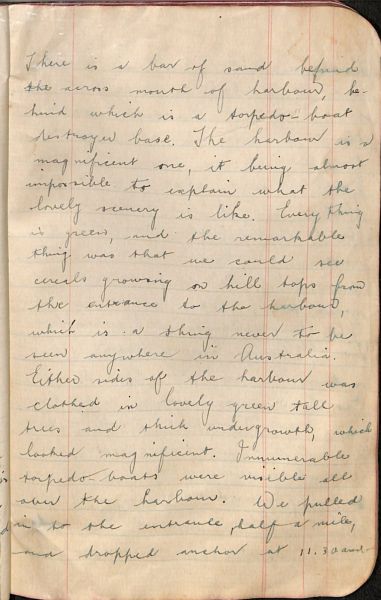 There is a bar of sand
the across mouth of harbour, be-
hind which is a torpedo-boat
destroyer base. The harbour is a
magnificent one, it being almost
impossible to explain what the
lovely scenery is like. Every thing
is green, and the remarkable
thing was that we could see
cereals growing on hill tops from
the entrance to the harbour,
which is a thing never to be
seen anywhere in Australia.
Either sides of the harbour was
clothed in lovely green tall
trees and thick undergrowth, which
looked magnificent. Innumerable
torpedo-boats were visible all
over the harbour. We pulled
in to the entrance, half a mile,
and dropped anchor at 11.30